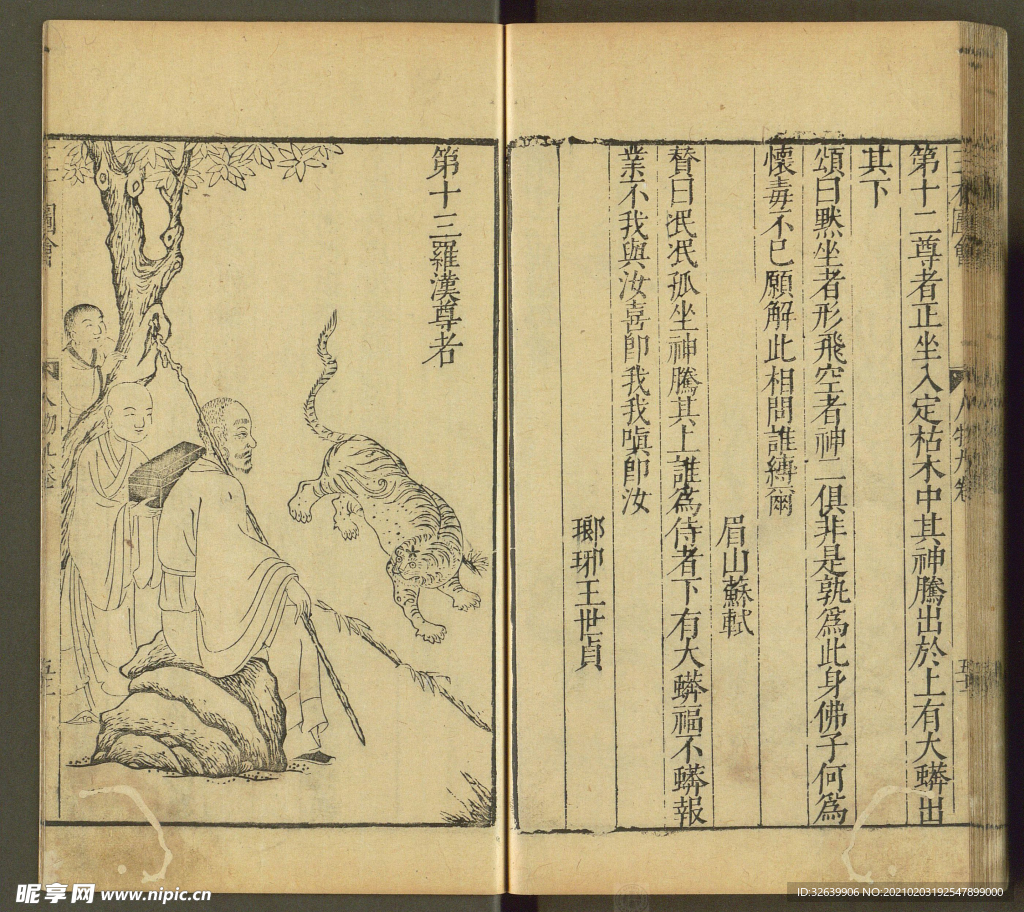 三才圖會
人物九卷
第十二尊者正坐入定枯木中其神騰出於上有大蟒出
其下
頌曰默坐者形飛空者神二俱非是孰為此身佛子何為
懷毒不已願解此相問誰縛爾
眉山蘇軾
贊曰泯泯孤坐神騰其上誰為侍者下有大蟒福不蟒報
業不我與汝喜卽我我嗔卽汝
瑯琊王世貞
第十三羅漢尊者
圖會
人物九卷
昵享网 www.nipic.cn
ID:32639906 NO:20210203192547899000